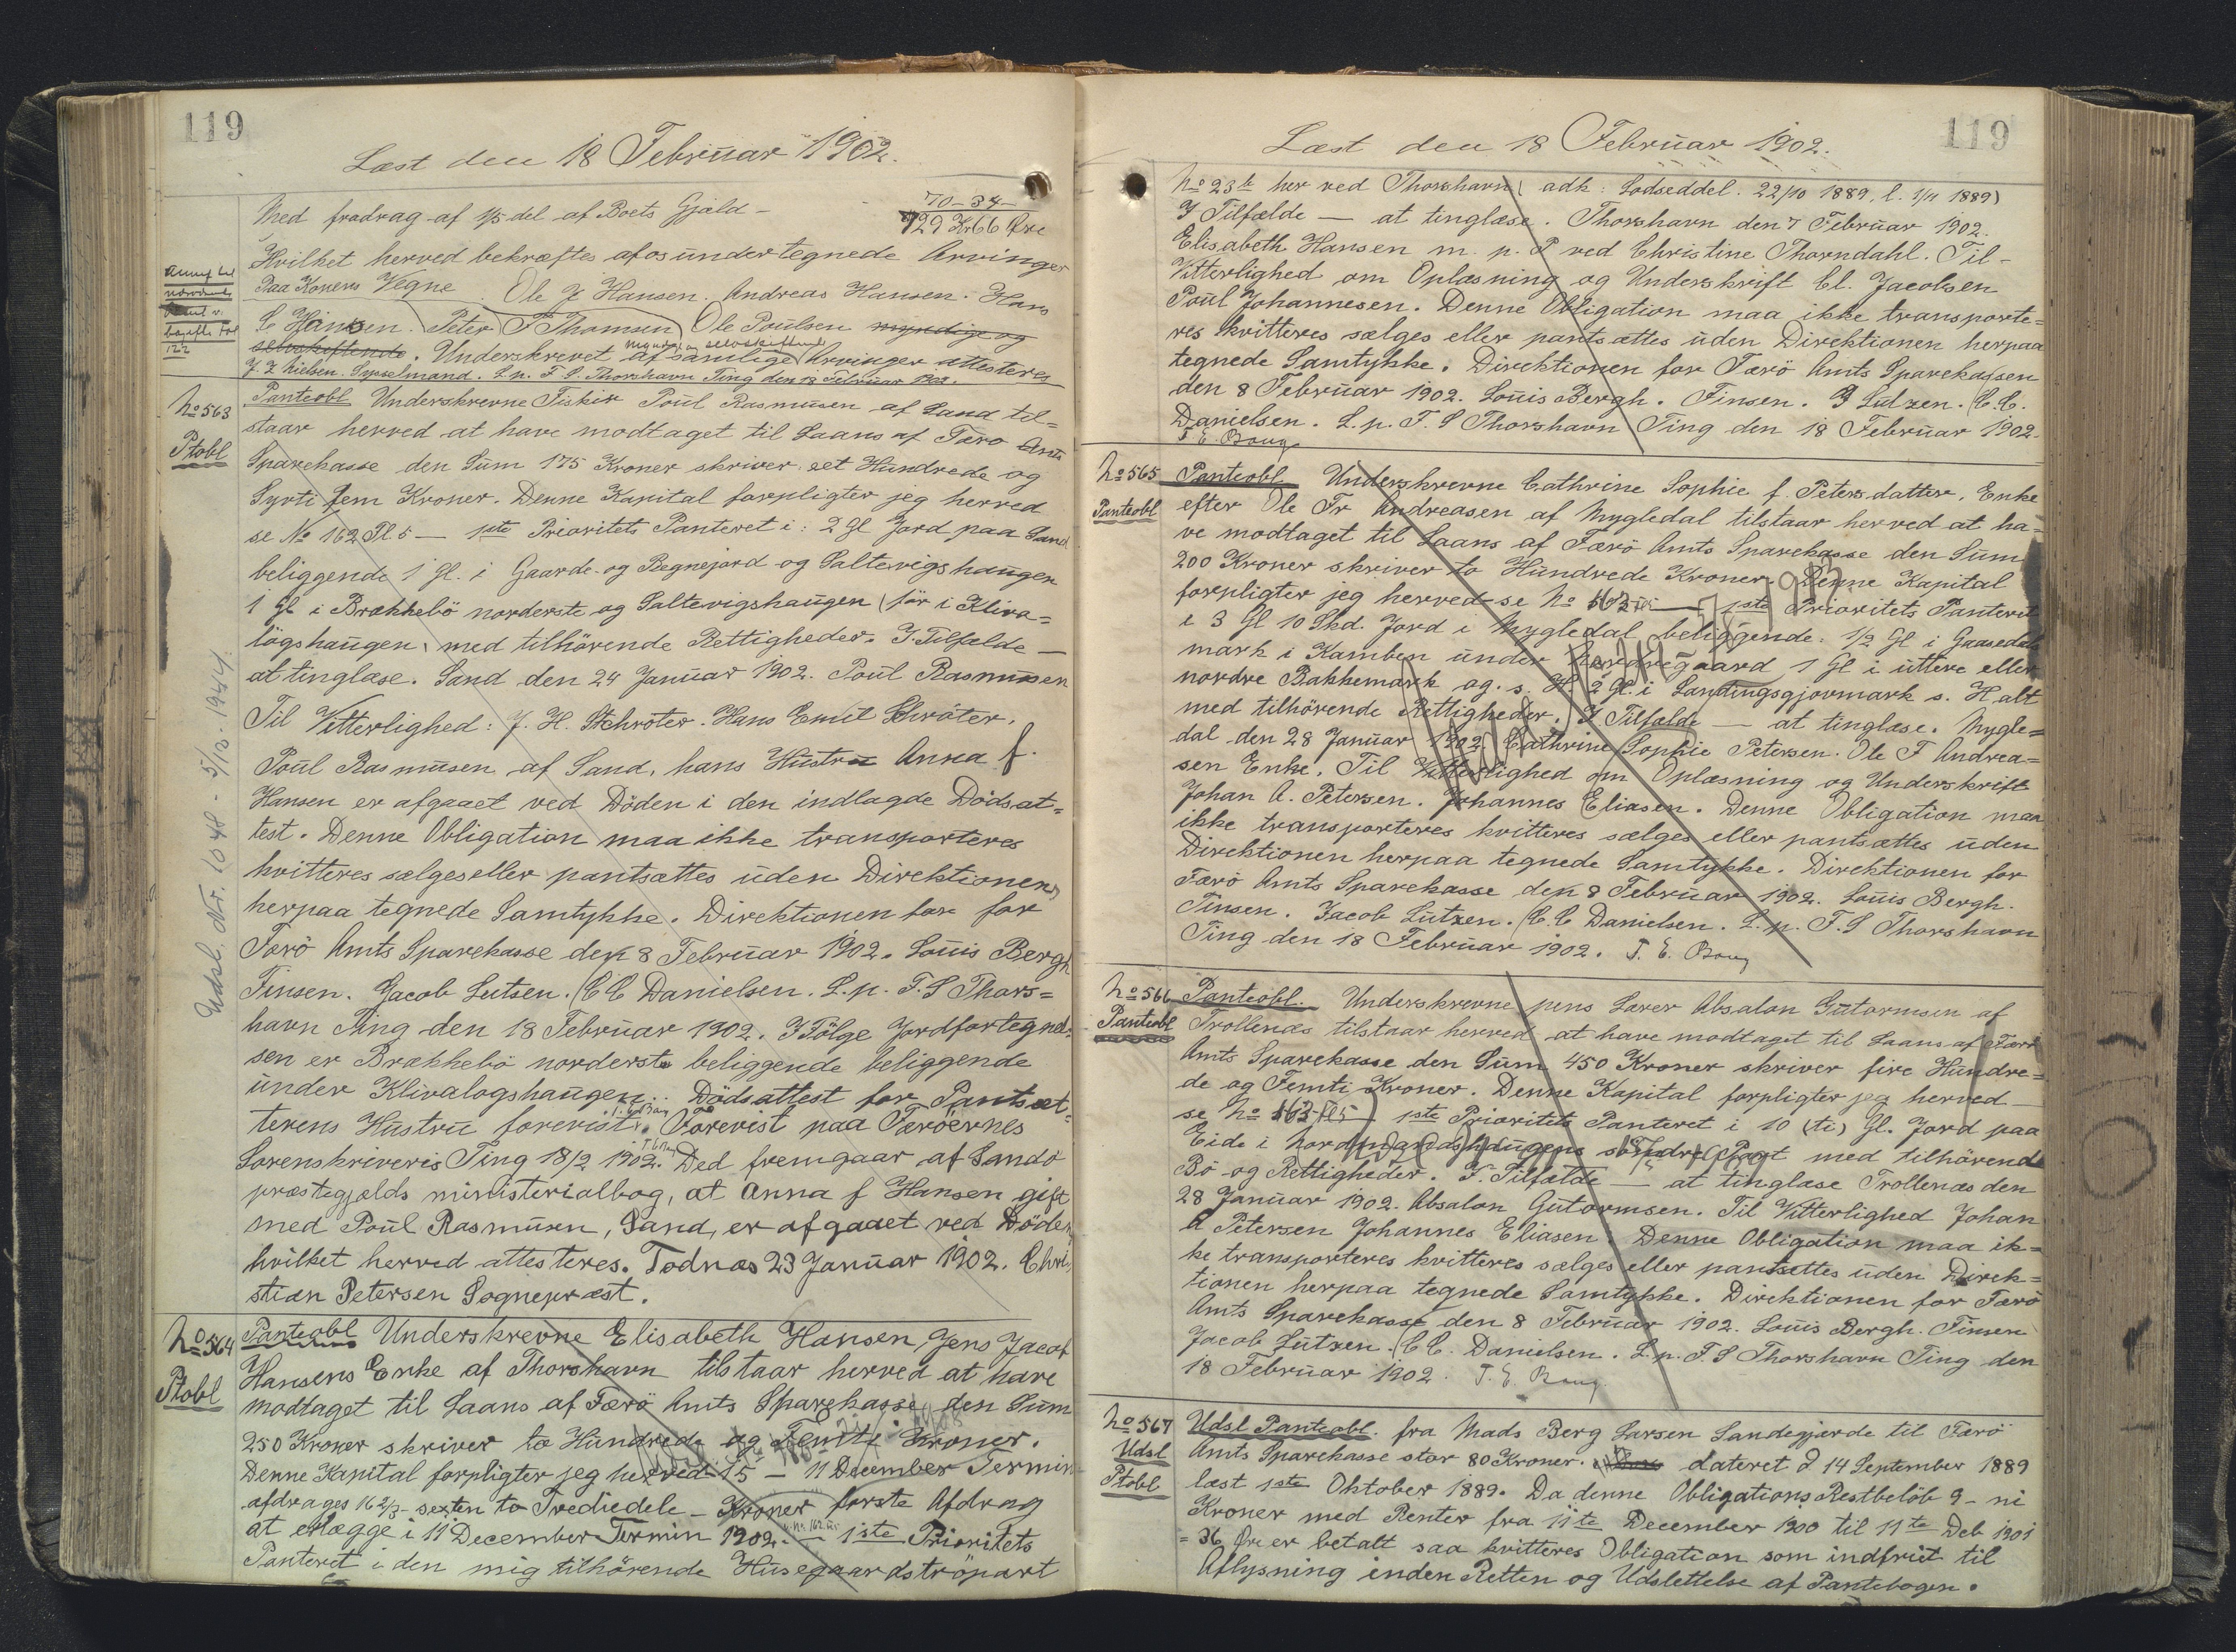 119
Læst den 18 Februar 1902.
Med fradrag af 1/5 del af Boets Gjæld -
70 - 34 -
729 Kr 66 Øre
Hvilket herved bekræftes af os undertegnede Arvinger
Paa Konens Vegne Ole J Hansen. Andreas Hansen. Hans
Hansen. Peter F Thomsen, Ole Poulsen myndige og
selvskiftende. Underskrevet af samtlige myndige og selvskiftende Arvinger attesteres
Nielsen. Sysselmand. L. p. F. S. Thorshavn Ting den 18 Februar 1902.
No 563
Ptobl
Panteobl Underskrevne Fisker Poul Rasmusen af Sand til=
staar herved at have modtaget til Laans af Færø Amts
Sparekasse den Sum 175 Kroner skriver eet Hundrede og
Syvti fem Kroner. Denne Kapital forpligter jeg herved
se No 162 Pl 5 — 1ste Prioritets Panteret i: 2 Gl Jord paa Sand
beliggende 1 Gl. i Gaarde- og Regnejord og Saltevigshaugen
1 Gl i Brækkebö norderste og Saltevigshaugen (för i Kliva=
lögshaugen, med tilhörende Rettigheder. I Tilfælde —
at tinglæse. Sand den 24 Januar 1902. Poul Rasmusen
Til Vitterlighed: J. H. Schröter. Hans Emil Schröter.
Poul Rasmusen af Sand, hans Hustru Anna f.
Hansen er afgaaet ved Döden i den indlagde Dödsat=
test. Denne Obligation maa ikke transporteres
kvitteres sælges eller pantsættes uden Direktionens
herpaa tegnede Samtykke. Direktionen for for
Færö Amts Sparekasse den 8 Februar 1902. Louis Bergh
Finsen. Jacob Lutsen. C C Danielsen. L. p. F. S Thors=
havn Ting den 18 Februar 1902. I Fölge Jordfortegnel=
sen er Brækkebö norderste beliggende beliggende
under Klivalogshaugen. Dödsattest for Pantsæt=
terens Hustru forevist. Forevist paa Færöernes
Sorenskriveris Ting 18/2 1902. Ded fremgaar af Sandö
præstegjælds ministerialbog, at Anna f Hansen gift
med Poul Rasmusen, Sand, er afgaaet ved Döden
hvilket herved attesteres. Todnæs 23 Januar 1902. Chri=
stian Petersen Sognepræst.
Udsl. Nr. 1048 - 5/12. 1944.
No 564
Ptobl
Panteobl Underskrevne Elisabeth Hansen Jens Jacob
Hansens Enke af Thorshavn tilstaar herved at have
modtaget til Laans af Færö Amts Sparekasse den Sum
250 Kroner skriver to Hundrede og Femti Kroner.
Denne Kapital forpligter jeg herved 15 — 11 December Termin
afdrages 16 2/3 - sexten to Trediedele - Kroner første Afdrag
at erlægge i 11 December Termin 1902. — 1ste Prioritets
Panteret i den mig tilhörende Husegaardströpart
119
Læst den 18 Februar 1902.
No 23 te her ved Thorshavn (adk: Lodseddel. 22/10 1889, l. 1/11 1889)
I Tilfælde — at tinglæse. Thorshavn den 7 Februar 1902.
Elisabeth Hansen m. p. P ved Christine Thorndahl. Til-
Vitterlighed om Oplæsning og Underskrift Cl. Jacobsen
Poul Johannesen. Denne Obligation maa ikke transporte=
res kvitteres sælges eller pantsættes uden Direktionen herpaa
tegnede Samtykke. Direktionen for Færö Amts Sparekassen
den 8 Februar 1902. Louis Bergh. Finsen. J Lutzen. C. C.
Danielsen. L. p. F. S Thorshavn Ting den 18 Februar 1902.
No 565
Panteobl
Panteobl Underskrevne Cathrine Sophie f. Petersdatter, Enke
efter Ole Fr Andreasen af Mygledal tilstaar herved at ha=
ve modtaget til Laans af Færö Amts Sparekasse den Sum
200 Kroner skriver to Hundrede Kroner. Denne Kapital
forpligter jeg herved se No 162 — 1ste Prioritets Panteret
i 3 Gl 10 Skd. Jord i Mygledal beliggende: 1/2 Gl i Gaasedals
mark i Kamben under 1 Gl i uttere eller
nordre Bakkemark og. s. H. 2 Gl. i Sandingsgjovmark s. H alt
med tilhörende Rettigheder. I Tilfælde — at tinglæse. Mygle=
dal den 28 Januar 1902 Cathrine Sophie Petersen. Ole F Andrea=
sen Enke. Til Vitterlighed om Oplæsning og Underskrift
Johan A. Petersen. Johannes Eliasen. Denne Obligation maa
ikke transporteres kvitteres sælges eller pantsættes uden
Direktionen herpaa tegnede Samtykke. Direktionen for
Færö Amts Sparekasse den 8 Februar 1902. Louis Bergh.
Finsen. Jacob Lutzen. C. C Danielsen. L. p. F. S Thorshavn
Ting den 18 Februar 1902.
No 566
Panteobl
Panteobl. Underskrevne pens Lærer Absalon Gutormsen af
Trollenæs tilstaar herved at have modtaget til Laans af Færö
Amts Sparekasse den Sum 450 Kroner skriver fire Hundre=
de og Femti Kroner. Denne Kapital forpligter jeg herved —
se No 162 Pl 5 1ste Prioritets Panteret i 10 (ti) Gl. Jord paa
Eide i med tilhörende
Bö og Rettigheder. I Tilfælde — at tinglæse Trollenæs den
28 Januar 1902. Absalon Gutormsen. Til Vitterlighed Johan
A Petersen Johannes Eliasen. Denne Obligation maa ik=
ke transporteres kvitteres sælges eller pantsættes uden Direk=
tionen herpaa tegnede Samtykke. Direktionen for Færö
Amts Sparekasse den 8 Februar 1902. Louis Bergh. Finsen
Jacob Lutzen. C C. Danielsen. L. p. F. S Thorshavn Ting den
18 Februar 1902.
No 567
Udsl
Ptobl
Udsl Panteobl. fra Mads Berg Larsen Sandegjærde til Færö
Amts Sparekasse stor 80 Kroner. dateret d 14 September 1889
læst 1ste Oktober 1889. Da denne Obligations Restbelöb 9 - ni
Kroner med Renter fra 11te December 1900 til 11te Deb 1901
= 36 Öre er betalt saa kvitteres Obligation som indfriet til
Aflysning inden Retten og Udslettelse af Pantebogen.